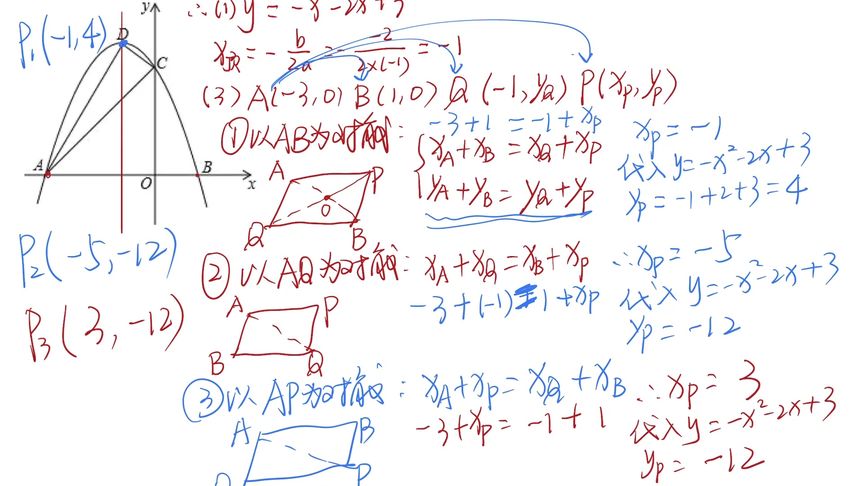 P₁(-1,4)
y
D
C
A
O
B
x
∴(1) y = -x²-2x+3
x顶 = -b/2a = -(-2)/(2×(-1)) = -1
(3) A(-3,0) B(1,0) Q(-1,yQ) P(xP,yP)
①以AB为对角线:
-3+1 = -1+xP
xA+xB = xQ+xP
yA+yB = yQ+yP
xP = -1
代入 y=-x²-2x+3
yP = -1+2+3=4
A
P
O
Q
B
P₂(-5,-12)
②以AQ为对角线: xA+xQ=xB+xP
-3+(-1)=1+xP
∴xP = -5
代入 y=-x²-2x+3
yP = -12
A
P
B
Q
P₃(3,-12)
③以AP为对角线: xA+xP = xQ+xB
-3+xP = -1+1
∴xP = 3
代入 y=-x²-2x+3
yP = -12
A
B
P